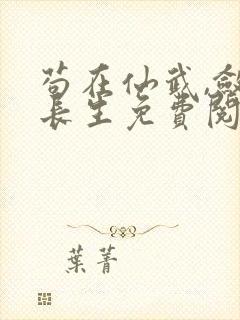 苟在仙武,斂
長生免費閱
葉菁